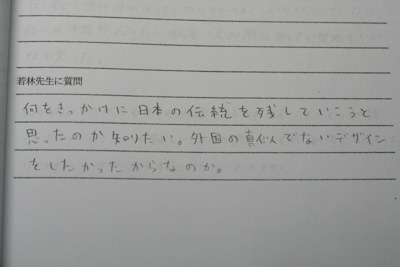 若林先生に質問
何をきっかけに日本の伝統を残していこうと
思ったのか知りたい。外国の真似でないデザイン
をしたかったからなのか。